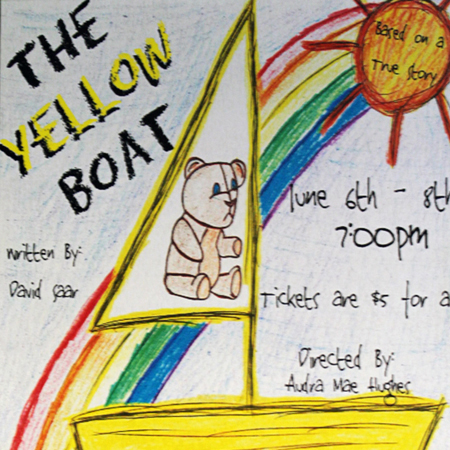 THE
YELLOW
BOAT
Based on a
True Story
June 6th - 8th
7:00pm
written By:
David Saar
Tickets are $5 for a
Directed By:
Audra Mae Hughes